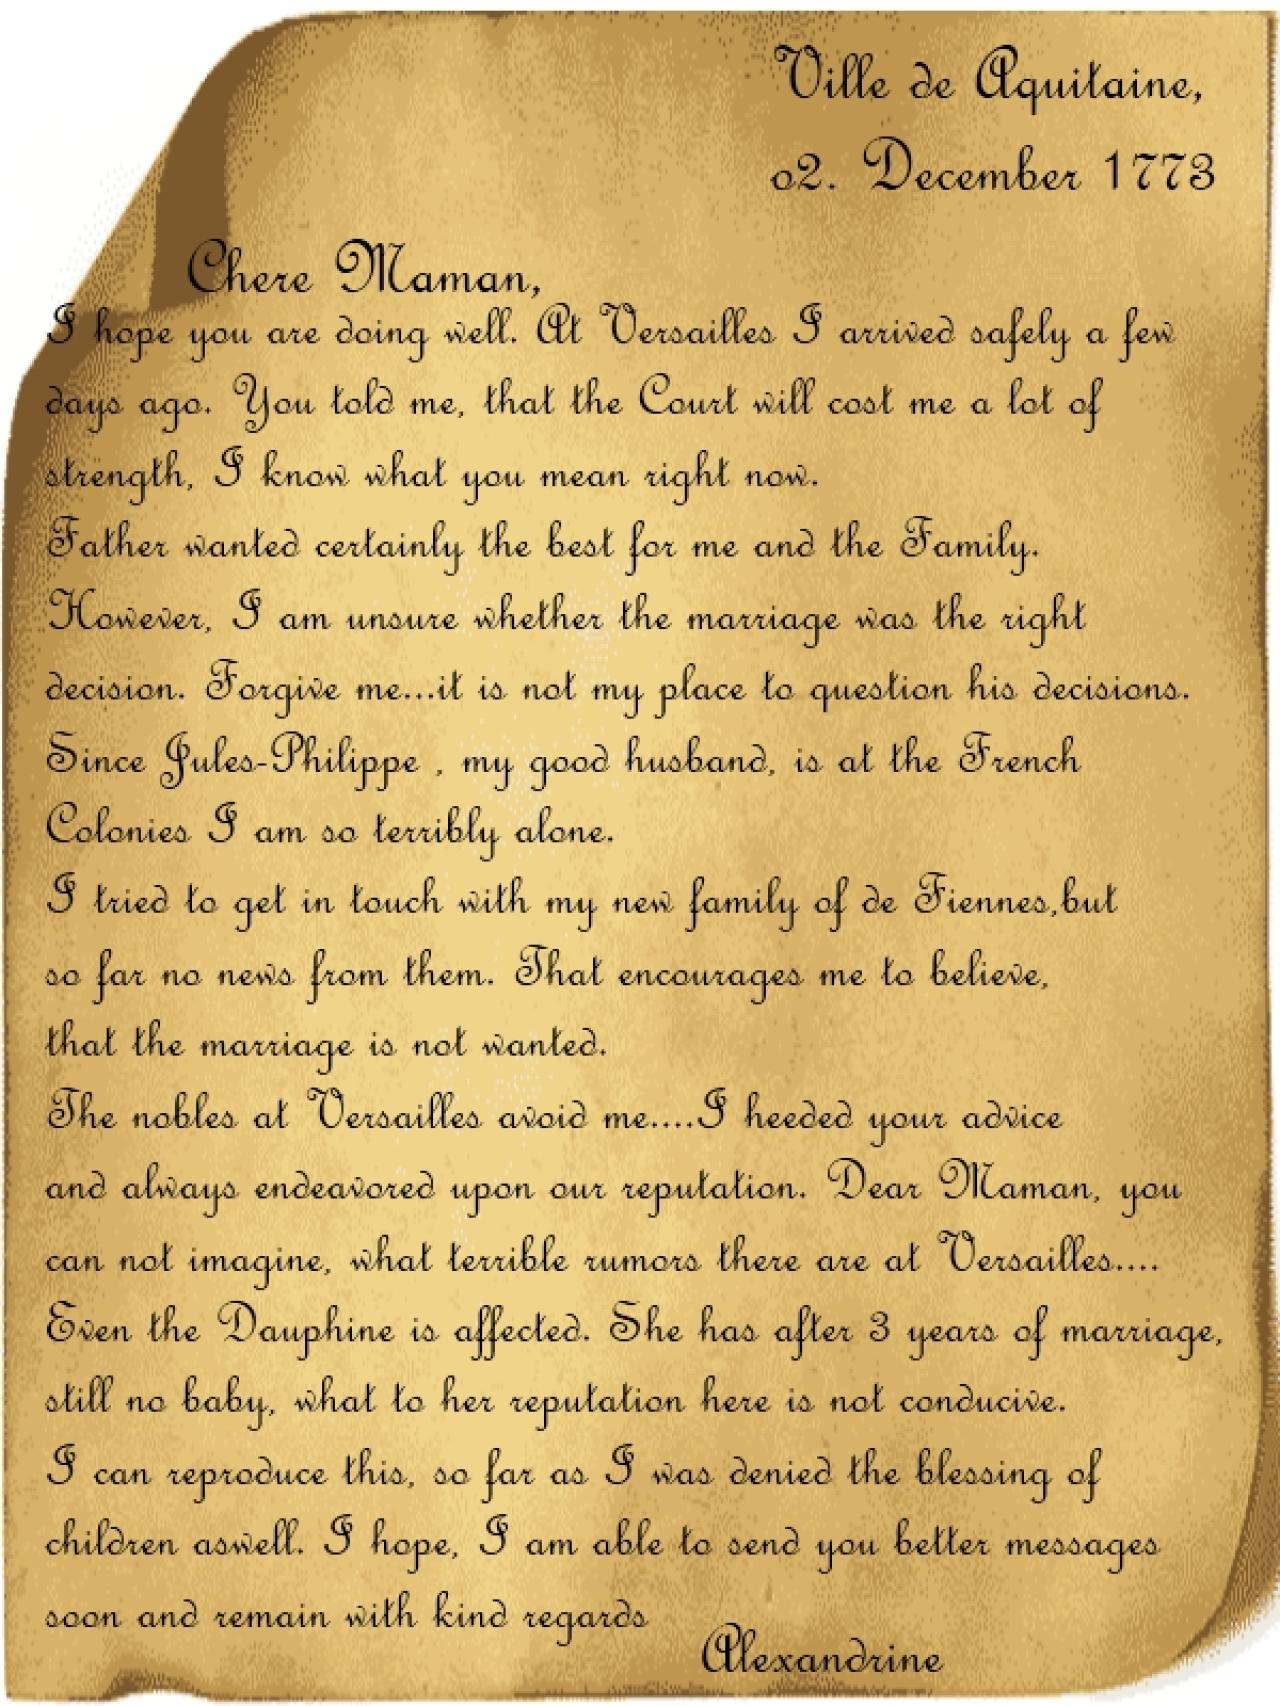 Ville de Aquitaine,
02. December 1773
Chere Maman,
I hope you are doing well. At Versailles I arrived safely a few
days ago. You told me, that the Court will cost me a lot of
strength, I know what you mean right now.
Father wanted certainly the best for me and the Family.
However, I am unsure whether the marriage was the right
decision. Forgive me...it is not my place to question his decisions.
Since Jules-Philippe , my good husband, is at the French
Colonies I am so terribly alone.
I tried to get in touch with my new family of de Fiennes,but
so far no news from them. That encourages me to believe,
that the marriage is not wanted.
The nobles at Versailles avoid me....I heeded your advice
and always endeavored upon our reputation. Dear Maman, you
can not imagine, what terrible rumors there are at Versailles....
Even the Dauphine is affected. She has after 3 years of marriage,
still no baby, what to her reputation here is not conducive.
I can reproduce this, so far as I was denied the blessing of
children aswell. I hope, I am able to send you better messages
soon and remain with kind regards
Alexandrine